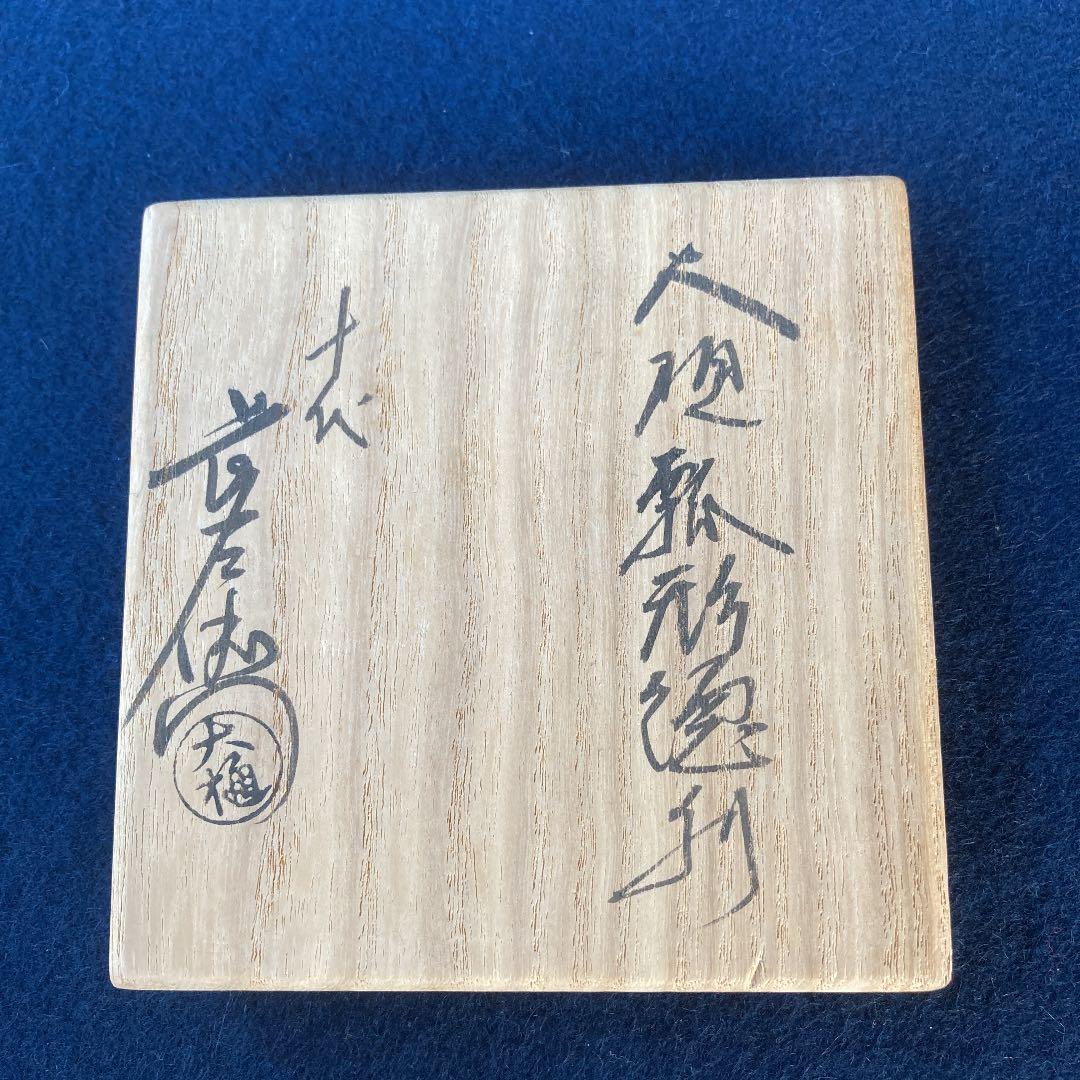 大樋瓢形徳利
十代
長左衛門
大樋